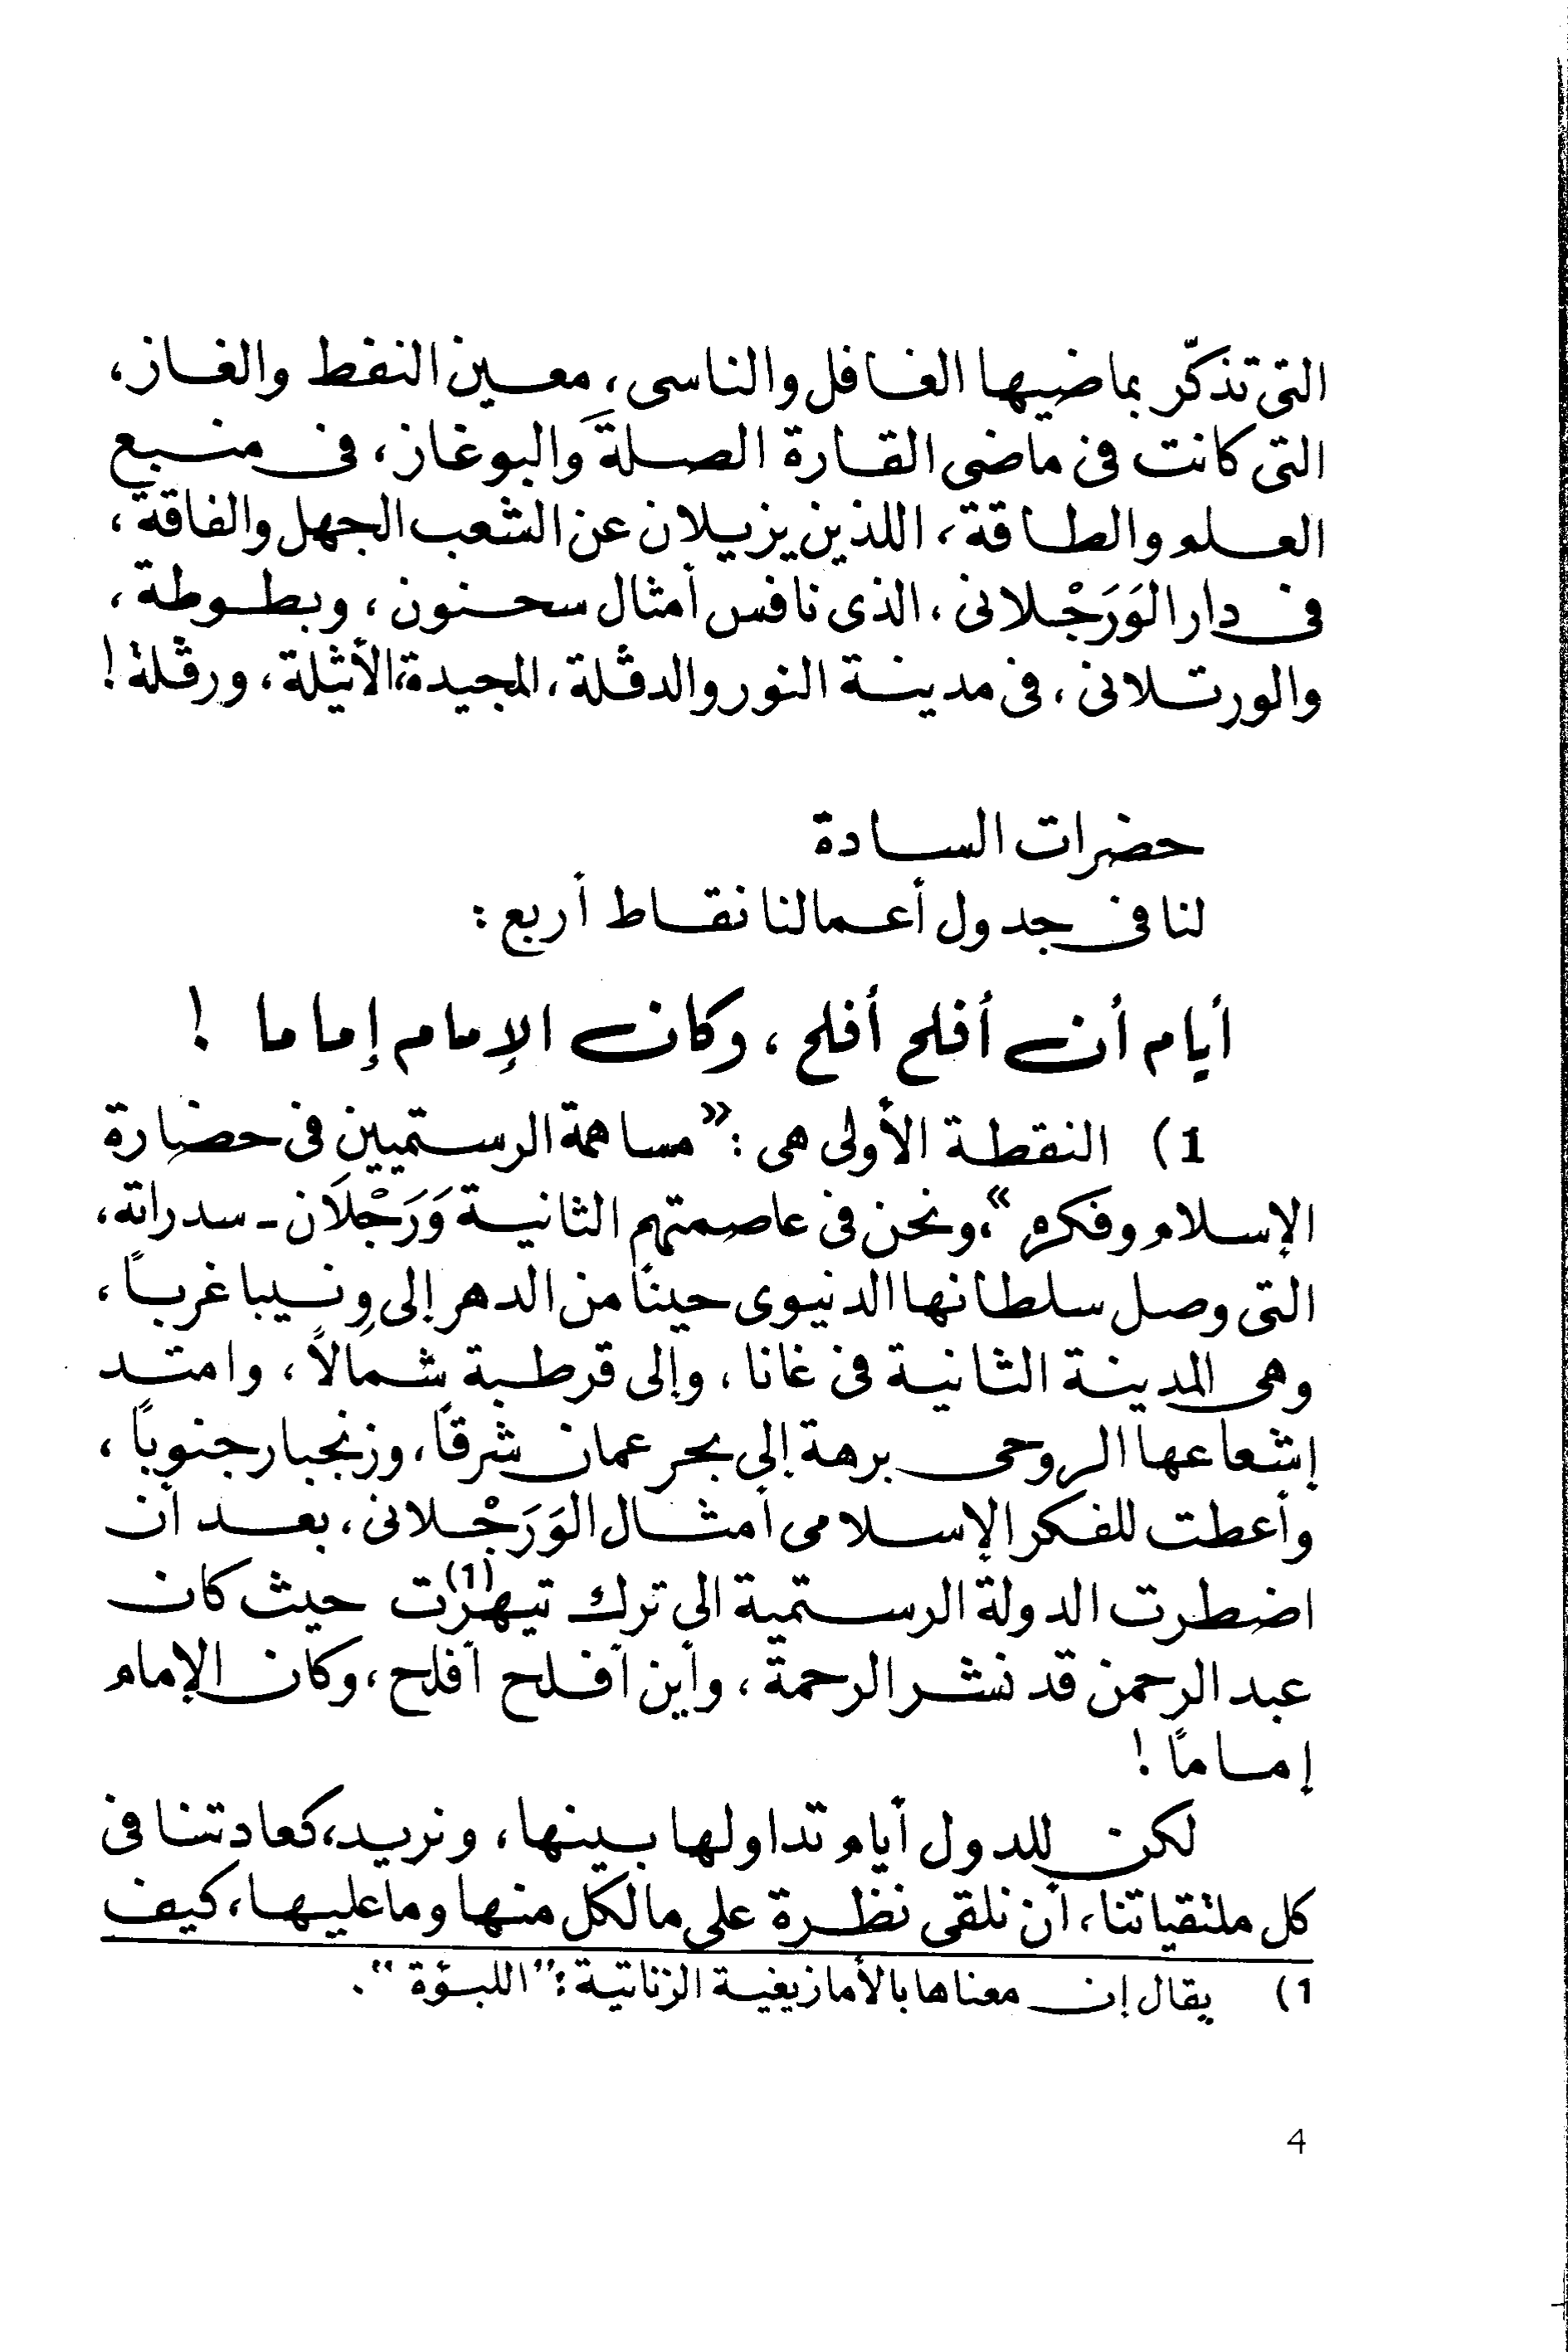 التى تذكّر بماضيها الغافل والناسى، معين النفط والغاز،
التى كانت فى ماضى القارة الصلةَ والبوغاز، فى منبع
العلم والطاقة، اللذين يزيلان عن الشعب الجهل والفاقة،
فى دار الوَرَجْلانى، الذى نافس أمثال سحنون، وبطوطة،
والورتلانى، فى مدينة النور والدڤلة، المجيدة، الأثيلة، ورڤلة!
حضرات السادة
لنا فى جدول أعمالنا نقاط أربع:
أيام أن أفلح أفلح، وكان الإمام إماما !
1) النقطة الأولى هى: "مساهمة الرستميين فى حضارة
الإسلام وفكره"، ونحن فى عاصمتهم الثانية وَرَجْلَان - سدراتة،
التى وصل سلطانها الدنيوى حينًا من الدهر إلى وِنسيبا غربًا،
وهى المدينة الثانية فى غانا، وإلى قرطبة شمالاً، وامتد
إشعاعها الروحى برهة إلى بحر عمان شرقًا، وزنجبار جنوبًا،
وأعطت للفكر الإسلامى أمثال الوَرَجْلانى، بعد أن
اضطرت الدولة الرستمية الى ترك تيهرْت (1) حيث كان
عبد الرحمن قد نشر الرحمة، وأين أفلح أفلح، وكان الإمام
إمامًا !
لكن للدول أيام تداولها بينها، ونريد، كعادتنا فى
كل ملتقياتنا، أن نلقى نظرة على ما لكل منها وما عليها، كيف
1) يقال إن معناها بالأمازيغية الزناتية: "اللبؤة".
4